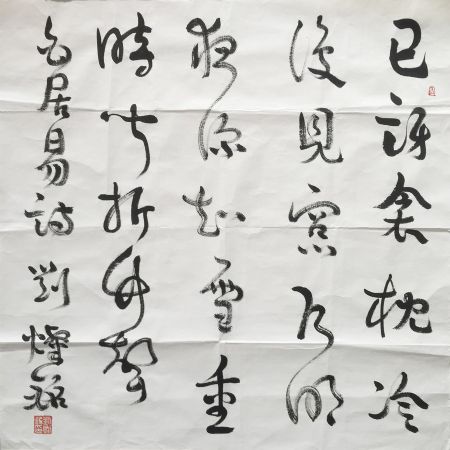 已訝衾枕冷
復見窗戶明
夜深知雪重
時聞折竹聲
白居易詩劉燦銘